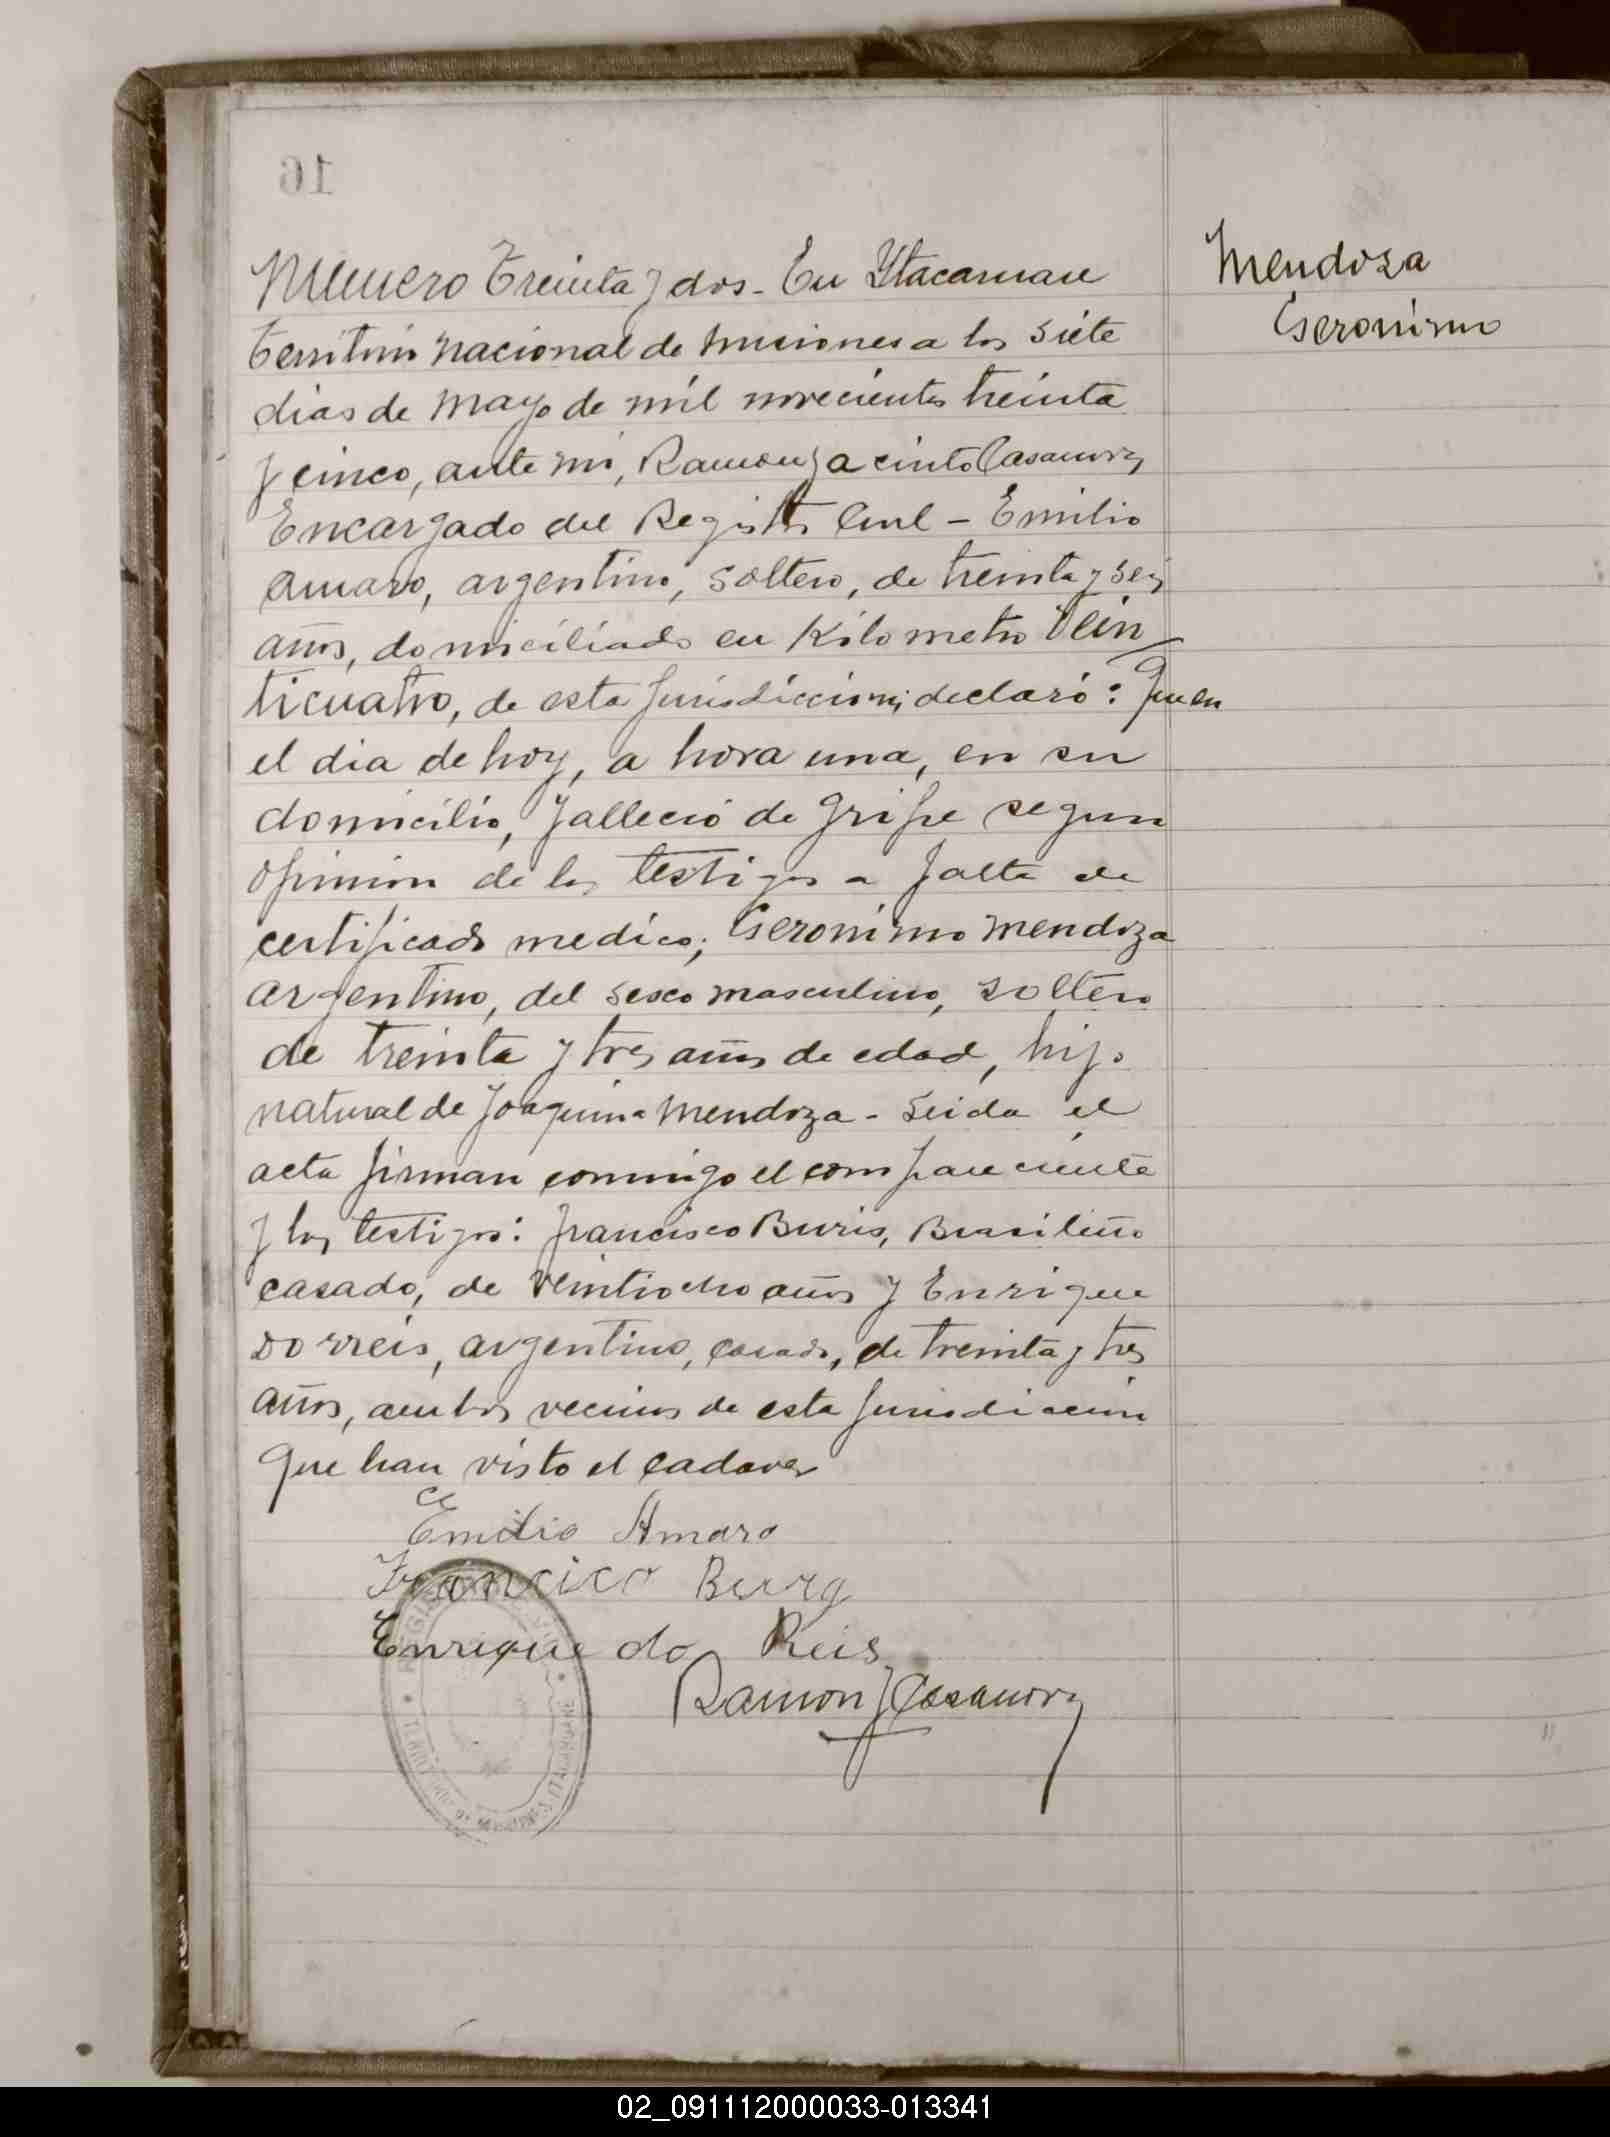 16
Mendoza
Geronimo
Numero Treinta y dos - En Ytacaruare
Territorio nacional de Misiones a los siete
dias de Mayo de mil novecientos treinta
y cinco, ante mi, Ramon Jacinto Casanova
Encargado del Registro Civil - Emilio
Amaro, argentino, soltero, de treinta y seis
años, domiciliado en Kilometro Vein
ticuatro, de esta jurisdiccion; declaró: Que en
el dia de hoy, a hora una, en su
domicilio, falleció de gripe segun
opinion de los testigos a falta de
certificado medico; Geronimo Mendoza
argentino, del sesco masculino, soltero
de treinta y tres años de edad, hijo
natural de Joaquina Mendoza - Leida el
acta firman conmigo el compareciente
y los testigos: Francisco Buris, Brasileño
casado, de veintiocho años y Enrique
Dorreis, argentino, casado, de treinta y tres
años, ambos vecinos de esta jurisdiccion
que han visto el cadaver
Emilio Amaro
Francico Burg
Enrique do Reis
Ramon J Casanova
02_091112000033-013341